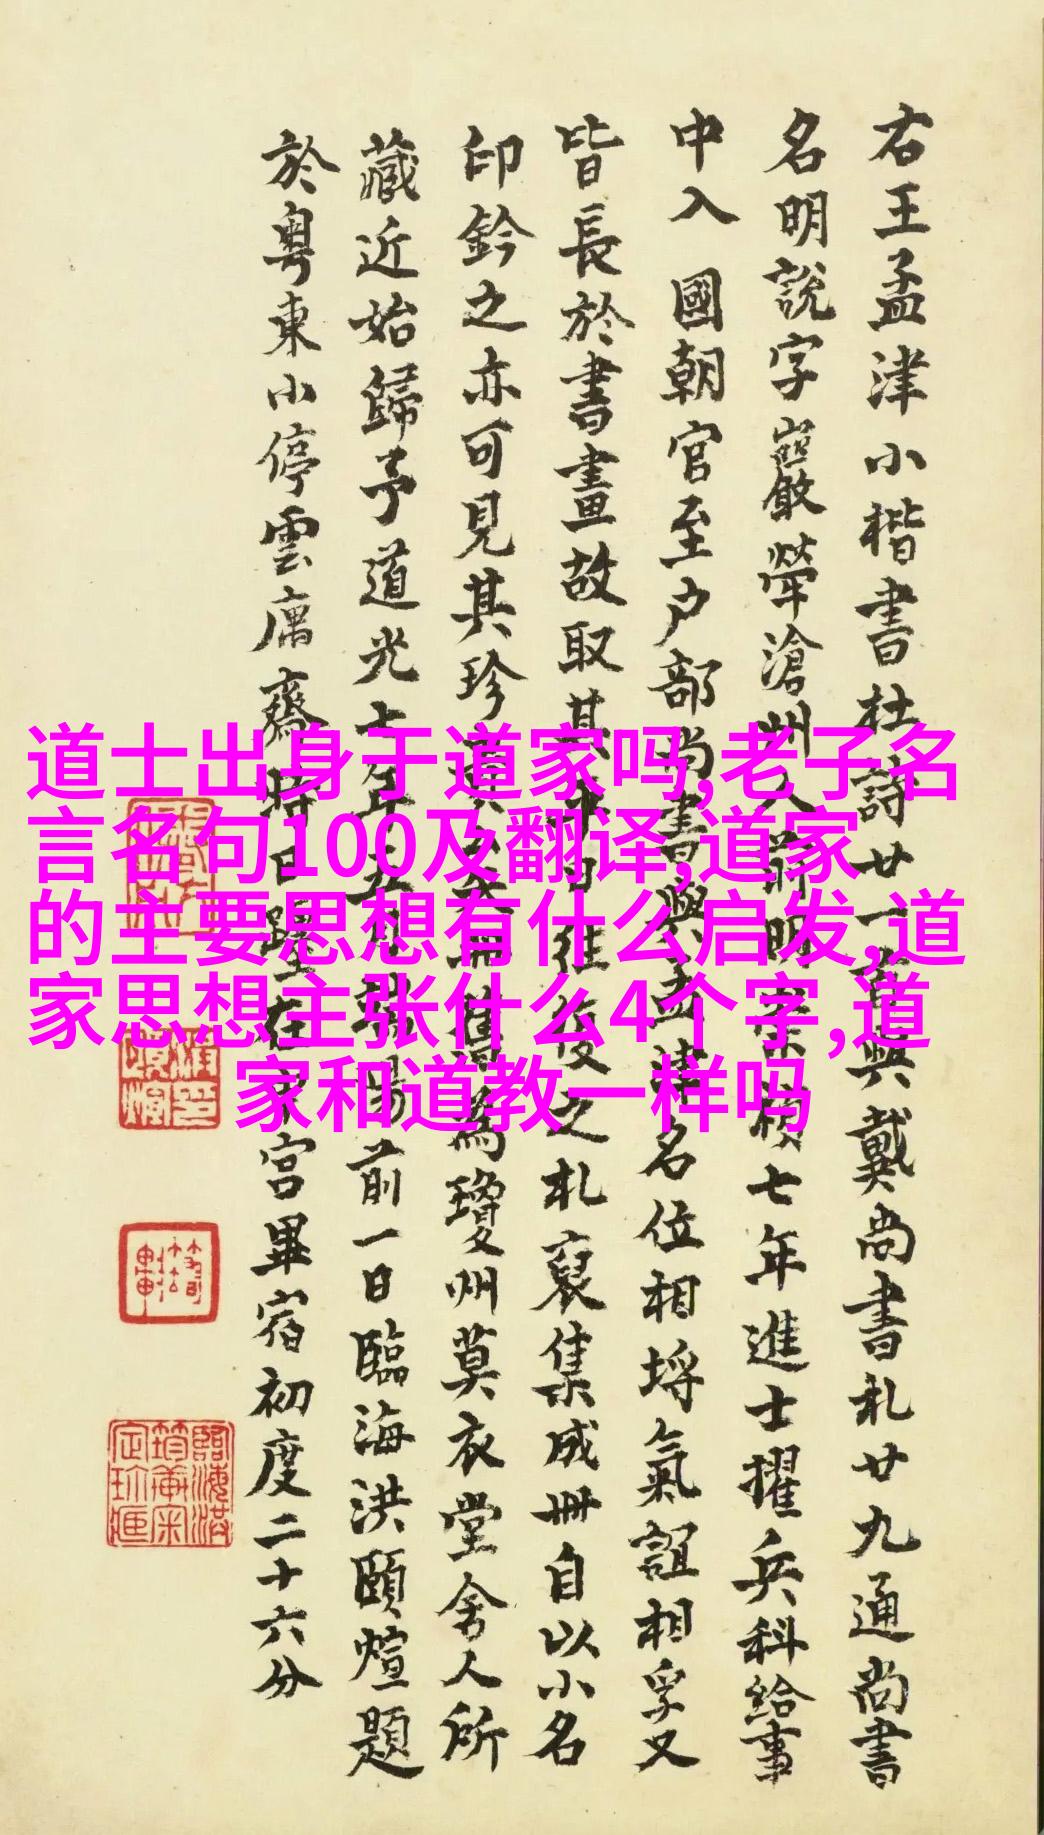 右王孟津小楷書杜詩廿一首與戴尚書札廿九通尚書
名明說字巖犖滄州人前明崇禎七年進士擢兵科給事
中入國朝官至户部尚書與孟津名位相埒氣誼相孚又
皆長於書畫故取其往復之札裒集成冊自以小名
印鈐之亦可見其珍舊為瓊州莫衣堂舍人所
藏近始歸予道光十年五前一日臨海洪頤煊題
於粵東小停雲庽齋時日躔在宫畢宿初度二十六分
道士出身于道家吗,老子名
言名句100及翻译,道家
的主要思想有什么启发,道
家思想主张什么4个字,道
家和道教一样吗